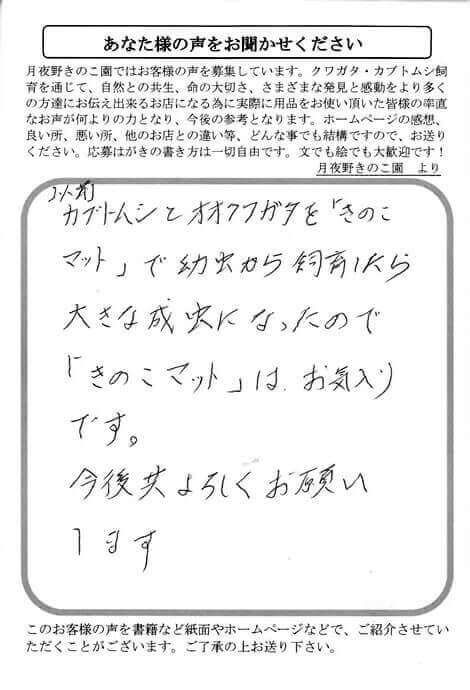 あなた様の声をお聞かせください
月夜野きのこ園ではお客様の声を募集しています。クワガタ・カブトムシ飼
育を通じて、自然との共生、命の大切さ、さまざまな発見と感動をより多く
の方達にお伝え出来るお店になる為に実際に用品をお使い頂いた皆様の率直
なお声が何よりの力となり、今後の参考となります。ホームページの感想、
良い所、悪い所、他のお店との違い等、どんな事でも結構ですので、お送り
ください。応募はがきの書き方は一切自由です。文でも絵でも大歓迎です！
月夜野きのこ園　より
以前
カブトムシとオオクワガタを「きのこ
マット」で幼虫から飼育したら
大きな成虫になったので
「きのこマット」は、お気入り
です。
今後共よろしくお願い
します
このお客様の声を書籍など紙面やホームページなどで、ご紹介させてい
ただくことがございます。ご了承の上お送り下さい。